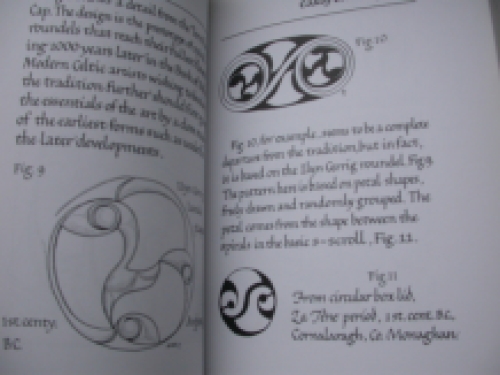 as a detail from the
Cap. The design is the prototype of
roundels that reach their
ing 1000 years later in the Book of
Modern Celtic artists wishing to
the tradition further should
the essentials of the art by a close
of the earliest forms such as
the later developments.
Fig. 9
Llyn
1st. centy.
B.C.
Early
Fig 10
Fig. 10, for example, seems to be a complete
departure from the tradition, but in fact,
it is based on the Llyn Cerrig roundel. Fig 9.
The pattern here is based on petal shapes,
freely drawn and randomly grouped. The
petal comes from the shape between the
spirals in the basic s-scroll, Fig. 11.
Fig 11
From circular box lid,
La Tène period, 1st. cent. B.C.,
Cornalaragh, Co. Monaghan.